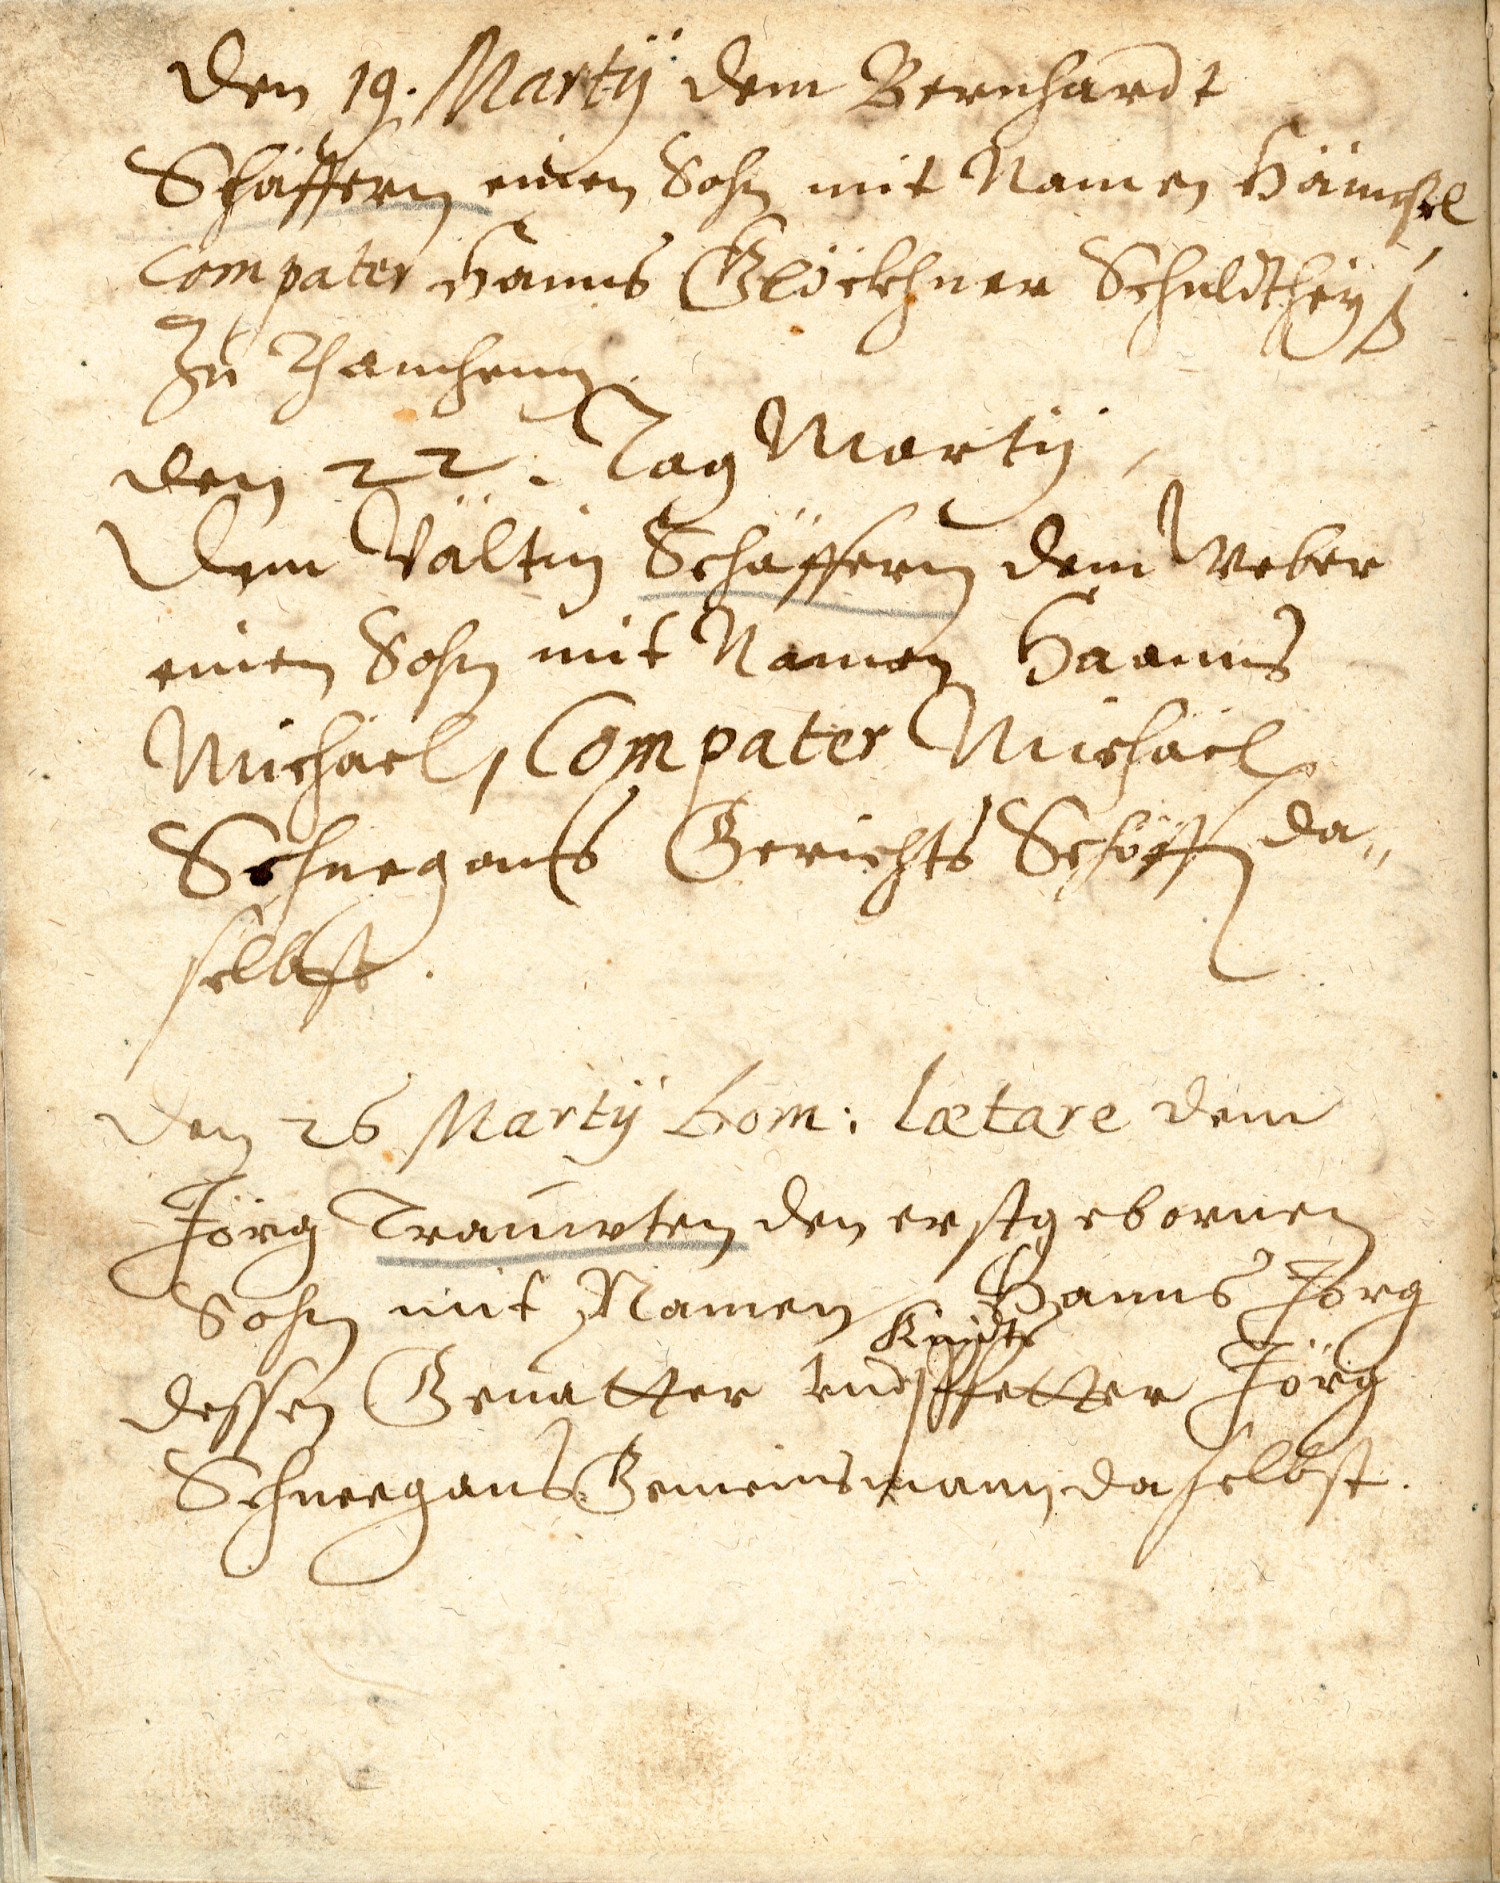 Den 19. Martÿ dem Bernhardt
Schäffern einen Sohn mit Namen
Compater Hanns Glöckhner Schuldtheyß
Zu
den 22. Tag Martÿ,
Dem Vältin Schäffern dem Weber
einen Sohn mit Namen Haanns
Michäel, Compater Michäel
Schneegans Gerichts Schöff da„
selbst.
Den 26 Martÿ Dom: lætare dem
Jörg Trauwten den erstgebornen
Sohn mit Namen Hanns Jörg
Kindts
dessen Geuatter vnd pfetter Jörg
Schneegans Gemeinsmann daselbst.